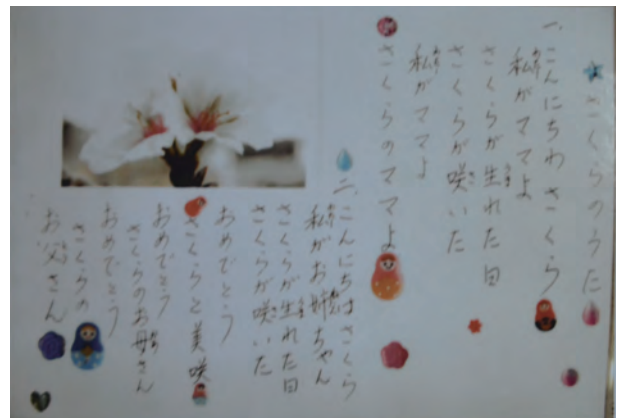 さくらのうた
一、こんにちわ さくら
私がママよ
さくらが生れた日
さくらが咲いた
私がママよ
さくらのママよ
二、こんにちはさくら
私がお姉ちゃん
さくらが生れた日
さくらが咲いた
おめでとう
さくらと美咲
おめでとう
さくらのお母さん
おめでとう
さくらの
お父さん